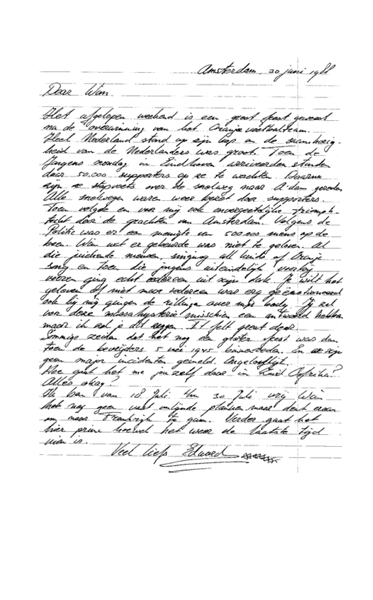 Amsterdam, 30 juni 1988
Dear Wim.
Het afgelopen weekend is een groot feest geweest
na de overwinning van het Oranje voetbalteam.
Heel Nederland stond op zijn kop en de
van de Nederlanders was groot. Toen de
jongens zondag in Eindhoven arriveerden stonden
daar 50.000 supporters op ze te wachten. Daarna
zijn ze over de snelweg naar A'dam gereden
Alle snelwegen waren bezet door supporters.
Toen volgde en voor mij ook onvergetelijke
tocht door de grachten van Amsterdam. Volgens de
Politie was er een menigte van 600.000 mens op de
been. Wim wat er gebeurde was niet te geloven. Al
die juichende mensen, singing all kinds of Oranje
song en toen die jongens uiteindelijk
waren ging echt iedereen uit zijn dak. Je wilt het
geloven of niet maar iedereen was erg geëmotioneerd
ook bij mij gingen de rillings over mijn body. Jij zal
voor deze massahysterie misschien een antwoord hebben
maar ik zal je dit zeggen. It felt great
Sommige zeiden dat het nog een groter feest was dan
toen de 5 mei 1945 En er zijn
geen major incidenten gemeld. Ongelooflijk.
Hoe gaat het met jou zelf daar in Zuid Afrika?
Alles okay?
Ik ben van 18 Juli t/m 30 Juli vrij Wim
heb nog geen vast plannen maar denk eraan
om naar Frankrijk te gaan. Verder gaat het
hier prima hoewel het weer de laatste tijd
is.
Veel liefs Eduard